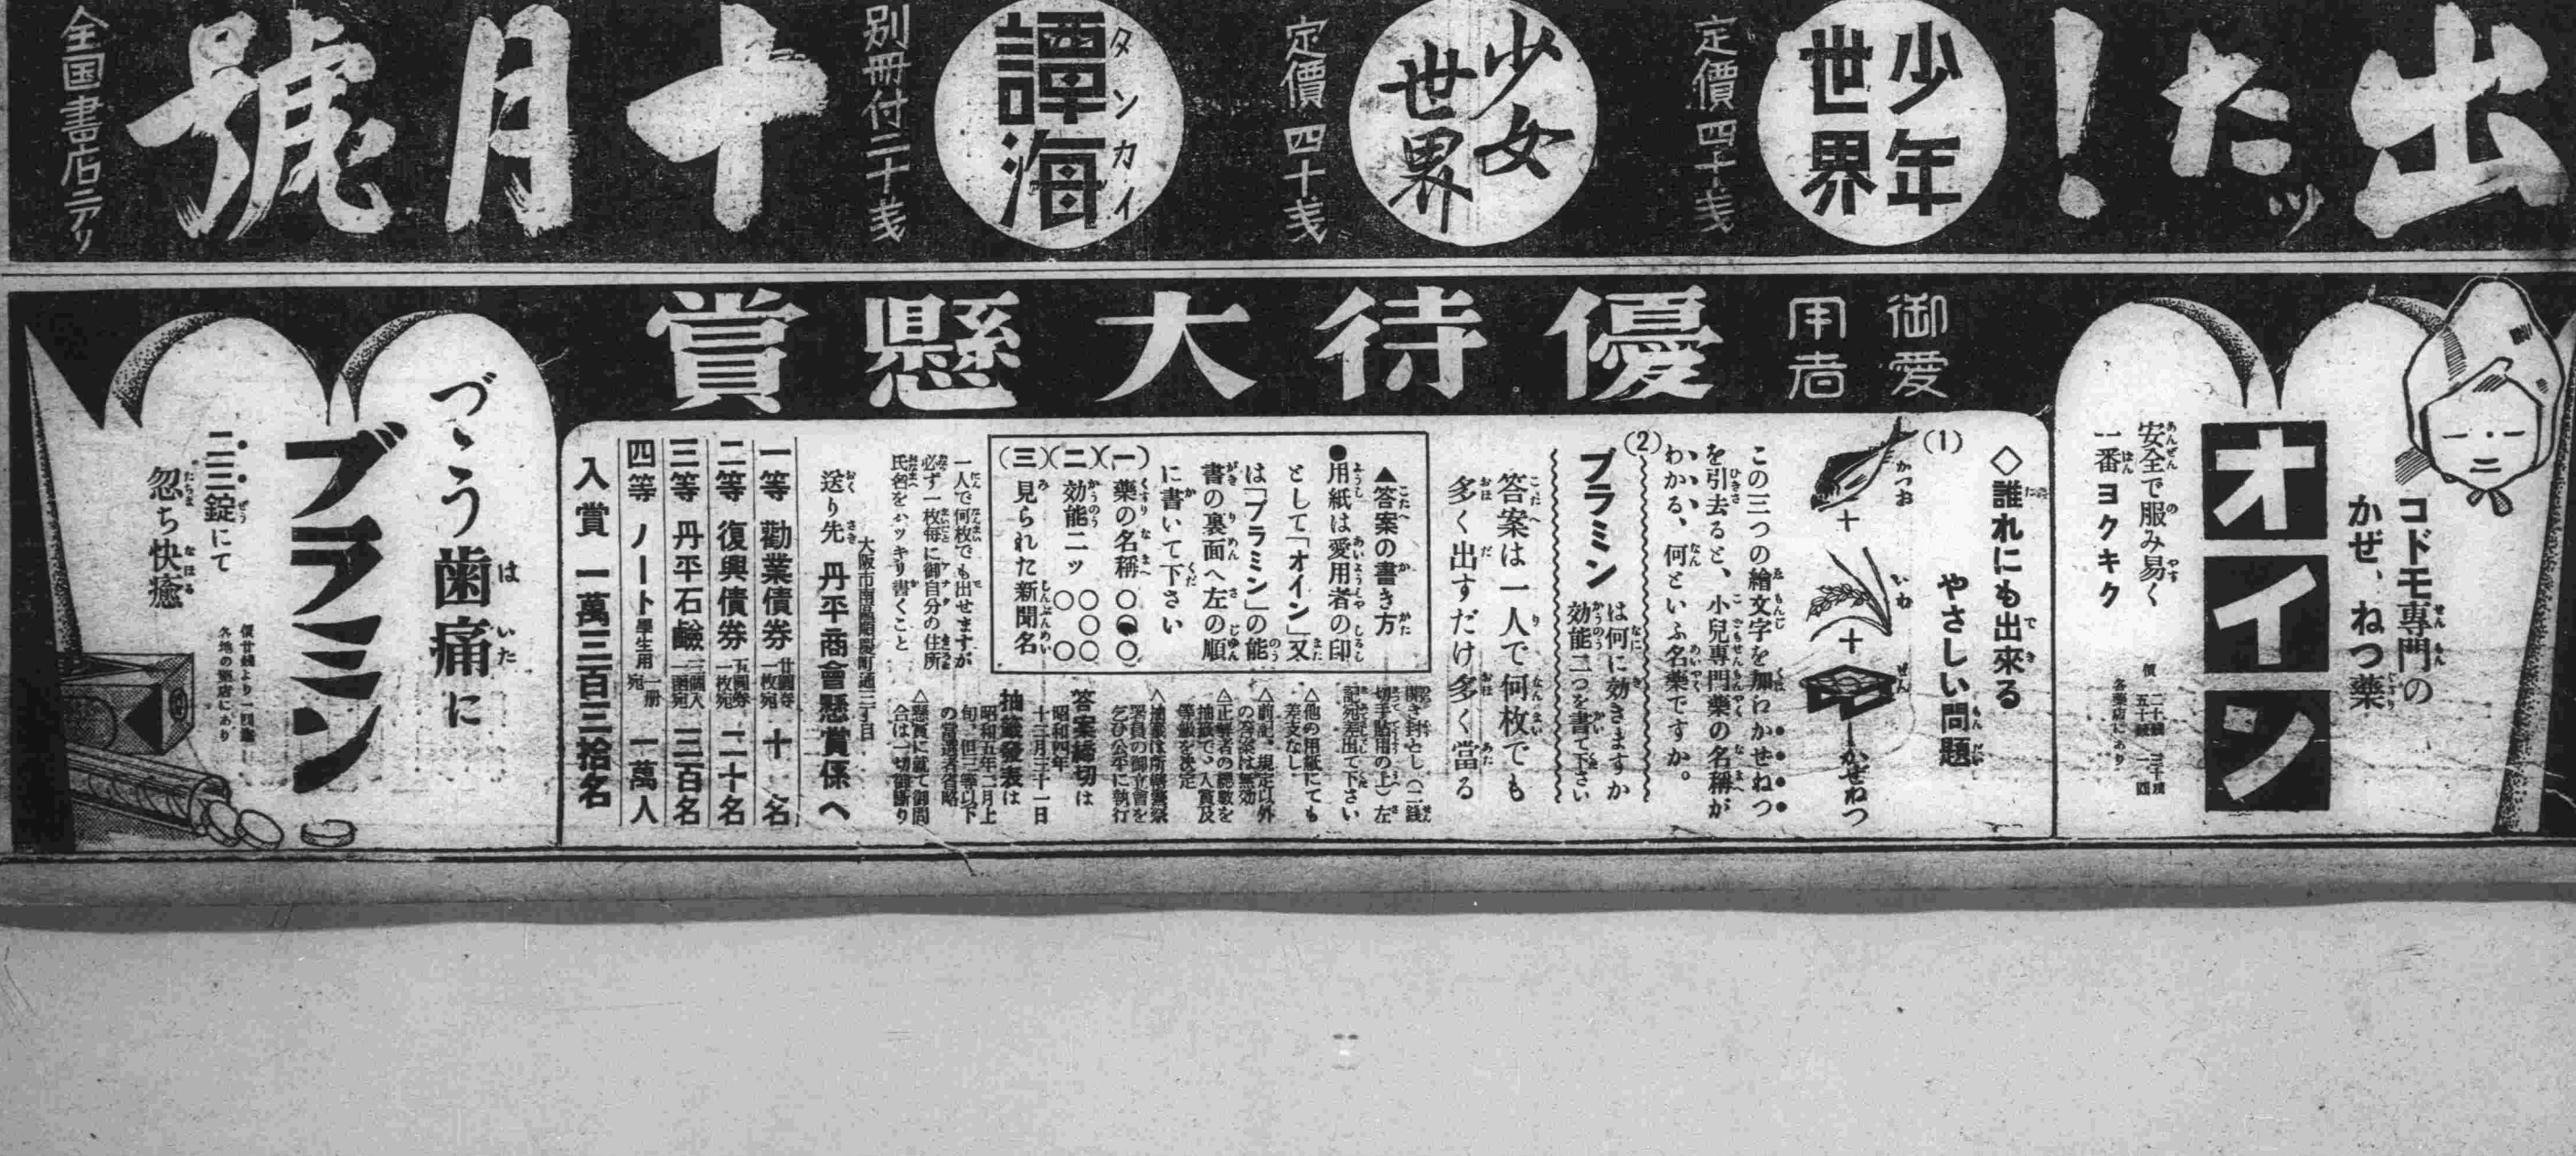 出たッ!
少年
世界
定價四十戔
少女
世界
定價四十戔
譚海
タンカイ
別冊付二十戔
十月號
全国書店ニアリ
御愛
用者
優待大懸賞
コドモ專門の
かぜ、ねつ藥
オイン
安全で服み易く
一番ヨクキク
各藥店にあり
◇誰れにも出來る
やさしい問題
(1)
かつお
+
いね
+
ぜん
ーかぜねつ
この三つの繪文字を加わかせねつ
を引去ると、小兒專門藥の名稱が
わかる、何といふ名藥ですか。
(2)
ブラミン
は何に効きますか
効能二つを書て下さい
答案は一人で何枚でも
多く出すだけ多く當る
▲答案の書き方
●用紙は愛用者の印
として「オイン」又
は「ブラミン」の能
書の裏面へ左の順
に書いて下さい
(一)藥の名稱
(二)効能二ッ
(三)見られた新聞名
一人で何枚でも出せますが
必ず一枚每に御自分の住所
氏名をハッキリ書くこと
開き封とし(二錢
切手貼用の上)左
記宛差出て下さい
△他の用紙にても
差支なし
△前記、規定以外
の答案は無効
△正解者の總數を
抽籤で、入賞及
等級を決定
△抽籤は所轄警察
署員の御立會を
乞ひ公平に執行
答案締切は
昭和四年
十二月三十一日
抽籤發表は
昭和五年二月上
旬、但三等以下
の當選者省略
△懸賞に就て御問
合は一切御斷り
大阪市南區順慶町通三丁目
送り先 丹平商會懸賞係へ
一等 勸業債券 廿圓券一枚宛 十名
二等 復興債券 五圓券一枚宛 二十名
三等 丹平石鹼 三個入一函宛 三百名
四等 ノート學生用 一册宛 一萬人
入賞 一萬三百三拾名
づゝう
歯痛に
ブラミン
二三錠にて
忽ち快癒
各地の藥店にあり